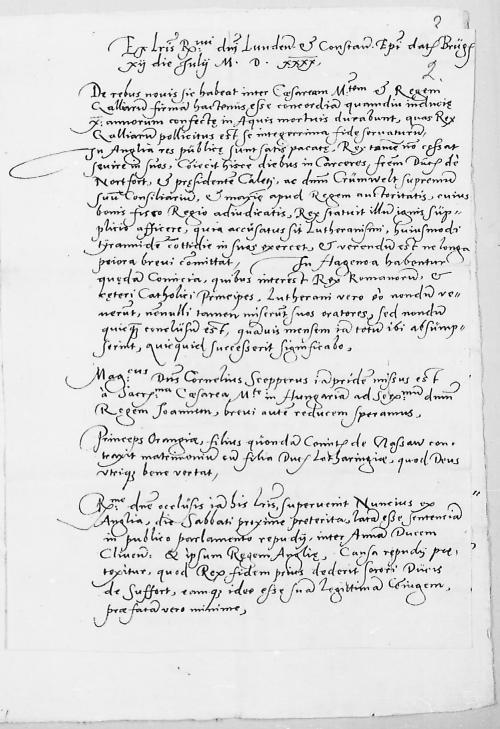 2
Ex Lris Rmi dni Lunden. & Constan. Epi dat. Brug.
xij die Julij M. D. XXXX.
2.
De rebus novis sic habeat inter Caesaream Mtem & Regem
Galliarum firma hactenus esse concordia quamdiu induciae
x. annorum confectae in Aquis mortuis durabunt, quas Rex
Galliarum pollicitus est se integerrima fide servaturum,
In Anglia res publicae sunt satis pacatae, Rex tamen no cessat
sevire in suos, Coniecit hisce diebus in Carceres, frem Ducis de
Nortfort, & presidente Caletj, ac dnm Crumwelt supremum
suum Consiliarium, & maxime apud Regem auctoritatis, cuius
bonis fisco Regio adiudicatis, Rex statuit illum ignis sup-
plicio afficere, quia accusatus sit Lutheranismi, huiusmodi
tyrannide cottidie in suos exercet, & verendum est ne longa
peiora brevi comittat, In Hagenoa habentur
quedam Comicia, quibus interest Rex Romanorum, &
ceteri Catholici Principes, Lutherani vero eo nondum ve-
nerut, nonulli tamen miserut suos oratores, sed nondum
quicq conclusum est, quamvis mensem iam totum ibi absump-
serint, quicquid successerit significabo,
Mag:cus Dns Cornelius Scepperus iampridem missus est
a Sacra Caesarea Mte in Hungariam ad Serenmum dnm
Regem Joannem, brevi autem reducem speramus,
Princeps Orangiae, filius quondam Comitis de Nassaw con-
traxit matrimonium cum filia Ducis Lotharingiae, quod Deus
utrisque bene vertat,
Rme dne occlusis iam his Lris, supervenit Nuncius ex
Anglia, die Sabbati proxime preterita, latam esse sententiam
in publico parlamento repudij, inter Annam Ducem
Cliven: & ipsum Regem Angliae, Causa repudij pre-
texitur, quod Rex fidem prius dederit sorori Ducis
de Suffort, eamque ideo esse suam legittimam Coniugem,
praefatam vero minime,